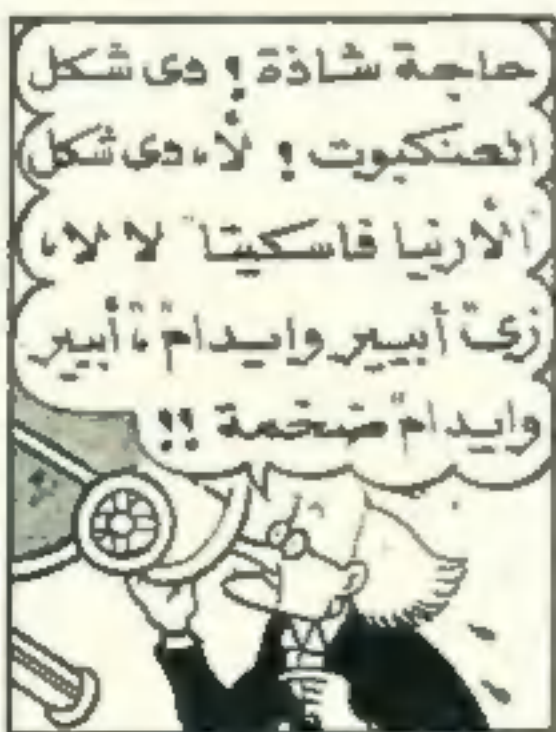 حاجة شاذة ! دى شكل
العنكبوت ! لأ، دى شكل
"الارنيا فاسكيتا" لا لا،
زىّ أبيير وايدام، أبيير
وايدام ضخمة !!